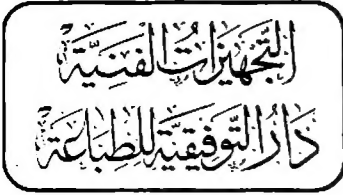 التَّجهِيزَاتُ الفَنيَّة
دَارُ التَّوفِيقيَّة للطِبَاعَة